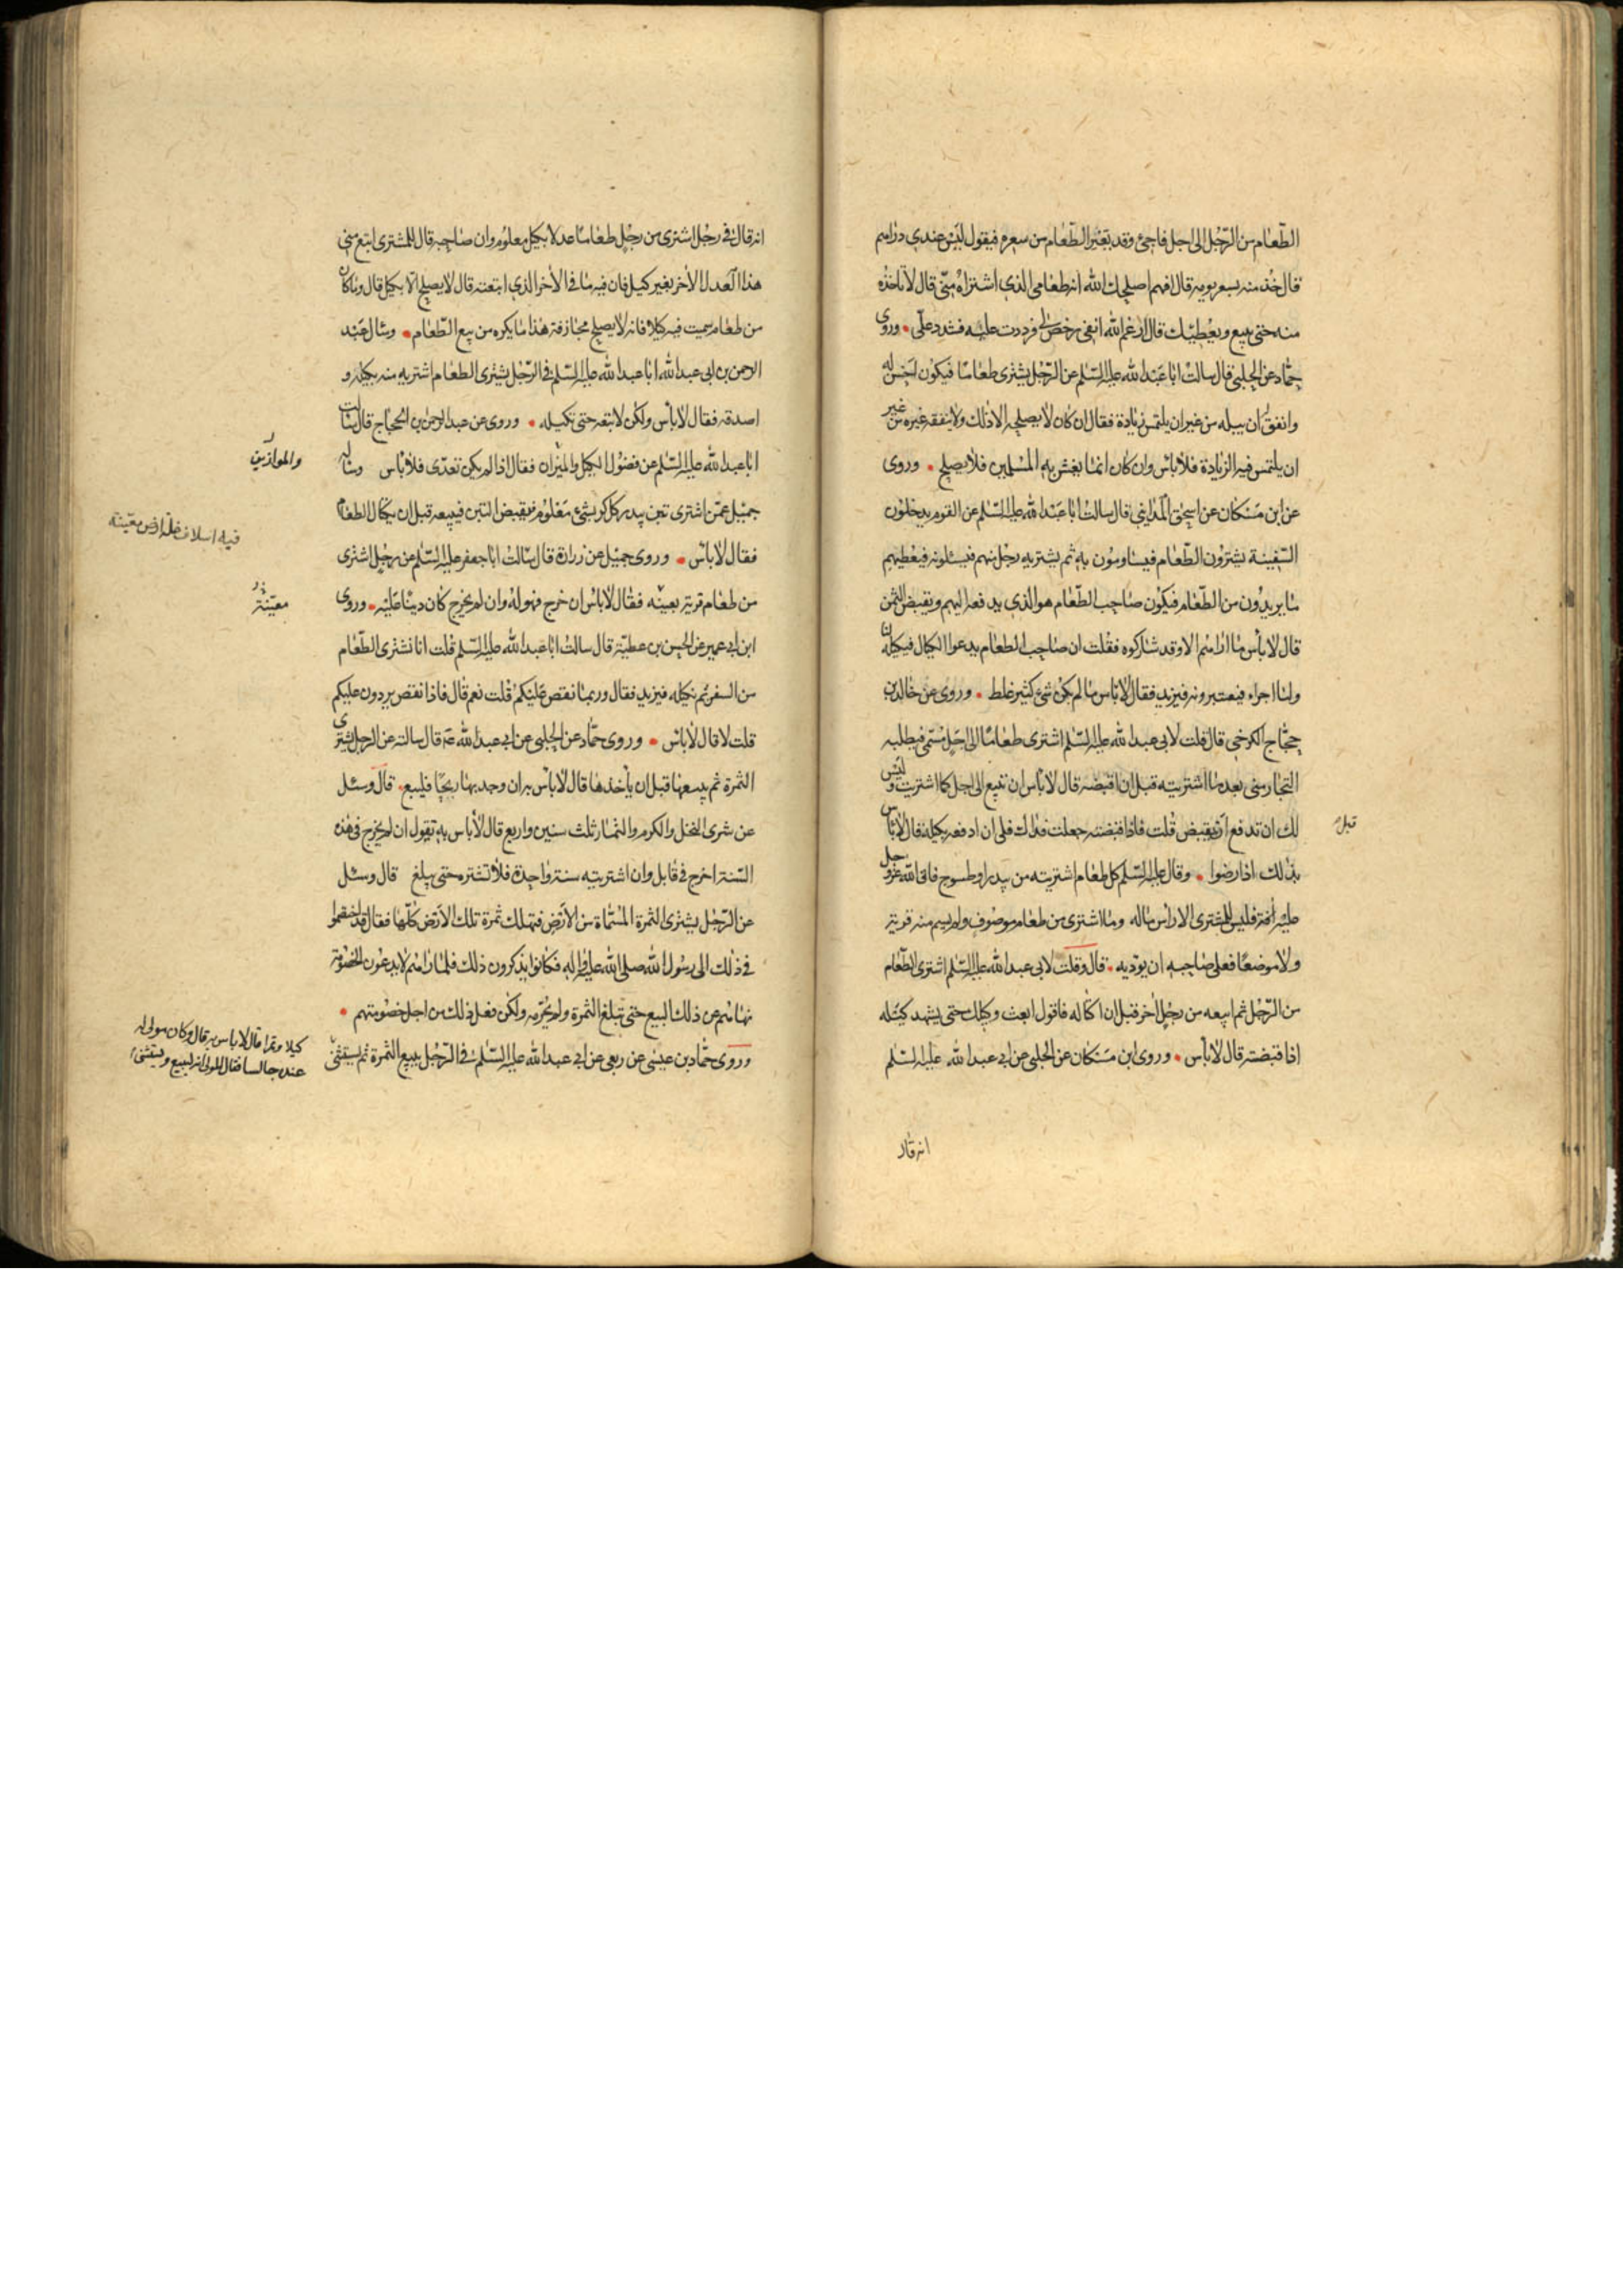 الطّعام من الرّجل الى اجل فاجئ وقد تغيّر الطّعام من سعره فيقول ليس عندي دراهم
قال خذ منه بسعر يومه قال افهم اصلحك الله انه طعامي الذي اشتراه منّي قال لا تاخذ
منه حتى يبيع ويعطيك قال ارغم الله انفي رخص لي فرددت عليه فشدد علّي وروى
حمّاد عن الحلبي قال سالت ابا عبد الله عليه السّلم عن الرّجل يشترى طعاما فيكون احسن له
وانفق ان يبله من غير ان يلتمس زيادة فقال ان كان لا يصلحه الا ذلك ولا ينفقه غيره من غير
ان يلتمس فيه الزيادة فلا باس وان كان انما يغش به المسلمين فلا يصلح وروى
عن ابن مسكان عن اسحق المدايني قال سالت ابا عبد الله عليه السّلم عن القوم يدخلون
السّفينة يشترون الطّعام فيتساومون به ثم يشتريه رجل منهم فيسئلونه فيعطيهم
ما يريدون من الطّعام فيكون صاحب الطّعام هو الذي يدفعه اليهم ويقبض الثمن
قال لا باس ما اراهم الا وقد شاركوه فقلت ان صاحب الطعام يدعو الكيال فيكيله لنا
ولنا اجراء فيعتبرونه فيزيد فقال لا باس ما لم يكن شئ كثير غلط وروى عن خالد بن
حجّاج الكرخي قال قلت لابي عبد الله عليه السّلم اشترى طعاما الى اجل مسمّى فيطلبه
التجار منّي بعد ما اشتريته قبل ان اقبضه قال لا باس ان تبيع الى اجل كما اشتريت وليس
لك ان تدفع او تقبض قلت فاذا قبضته جعلت فداك فلى ان ادفعه بكيله قال لا باس
قبل
بذلك اذا رضوا وقال عليه السّلم كل طعام اشتريته من بيدر او طسوج فاتى الله عزو جل
عليه آفة فليس للمشترى الا راس ماله وما اشترى من طعام موصوف ولم يسم منه قرية
ولا موضعا فعلى صاحبه ان يؤديه قال وقلت لابي عبد الله عليه السّلم اشترى الطّعام
من الرّجل ثم ابيعه من رجل اخر قبل ان اكتاله فاقول ابعث وكيلك حتى يشهد كيله
اذا قبضته قال لا باس وروى ابن مسكان عن الحلبي عن ابي عبد الله عليه السّلم
انه قال
انه قال في رجل اشترى من رجل طعاما عدلا بكيل معلوم وان صاحبه قال للمشترى ابتع منّي
هذا العدل الاخر بغير كيل فان فيه ما في الاخر الذي ابتعته قال لا يصلح الّا بكيل قال وما كان
من طعام سميت فيه كيلا فانه لا يصلح مجازفة هذا ما يكره من بيع الطّعام وسال عبد
الرحمن بن ابى عبد الله ابا عبد الله عليه السّلم في الرّجل يشترى الطعام اشتريه منه بكيله و
اصدقه فقال لا باس ولكن لا تبعه حتى تكيله وروى عن عبد الرحمن بن الحجاج قال سالت
ابا عبد الله عليه السّلم عن فضول الكيل والميزان فقال اذا لم يكن تعدّى فلا باس وساله
والموازين
جميل عمّن اشترى تبن بيدر كل كر بشئ معلوم فيقبض التبن فيبيعه قبل ان يكال الطعام
فيه اسلاف غلة ارض معيّنة
فقال لا باس وروى جميل عن زرارة قال سالت ابا جعفر عليه السّلم عن رجل اشترى
من طعام قرية بعينه فقال لا باس ان خرج فهو له وان لم يخرج كان دينا عليه وروى
معيّنة
ابن ابي عمير عن الحسن بن عطيّة قال سالت ابا عبد الله عليه السّلم قلت انا نشترى الطّعام
من السفن ثم نكيله فيزيد فقال وربما نقص عليكم قلت نعم قال فاذا نقص يردون عليكم
قلت لا قال لا باس وروى حمّاد عن الحلبي عن ابي عبد الله قال سالته عن الرجل يشترى
الثمرة ثم يبيعها قبل ان ياخذها قال لا باس به ان وجد بها ربحا فليبع قال وسئل
عن شرى النخل والكرم والثمار ثلث سنين واربع قال لا باس به تقول ان لم يخرج في هذه
السّنة اخرج في قابل وان اشتريته سنة واحدة فلا تشتره حتى يبلغ قال وسئل
عن الرّجل يشترى الثمرة المسمّاة من الارض فتهلك ثمرة تلك الارض كلّها فقال قد اختصموا
في ذلك الى رسول الله صلى الله عليه واله فكانوا يذكرون ذلك فلما راهم لا يدعون الخصومة
نهاهم عن ذلك البيع حتى تبلغ الثمرة ولم يحرّمه ولكن فعل ذلك من اجل خصومتهم
وروى حمّاد بن عيسى عن ربعي عن ابي عبد الله عليه السّلم في الرّجل يبيع الثمرة ثم يستثنى
كيلا وتمرا قال لا باس به قال وكان مولى له
عنده جالسا فقال المولى انه ليبيع ويستثنى